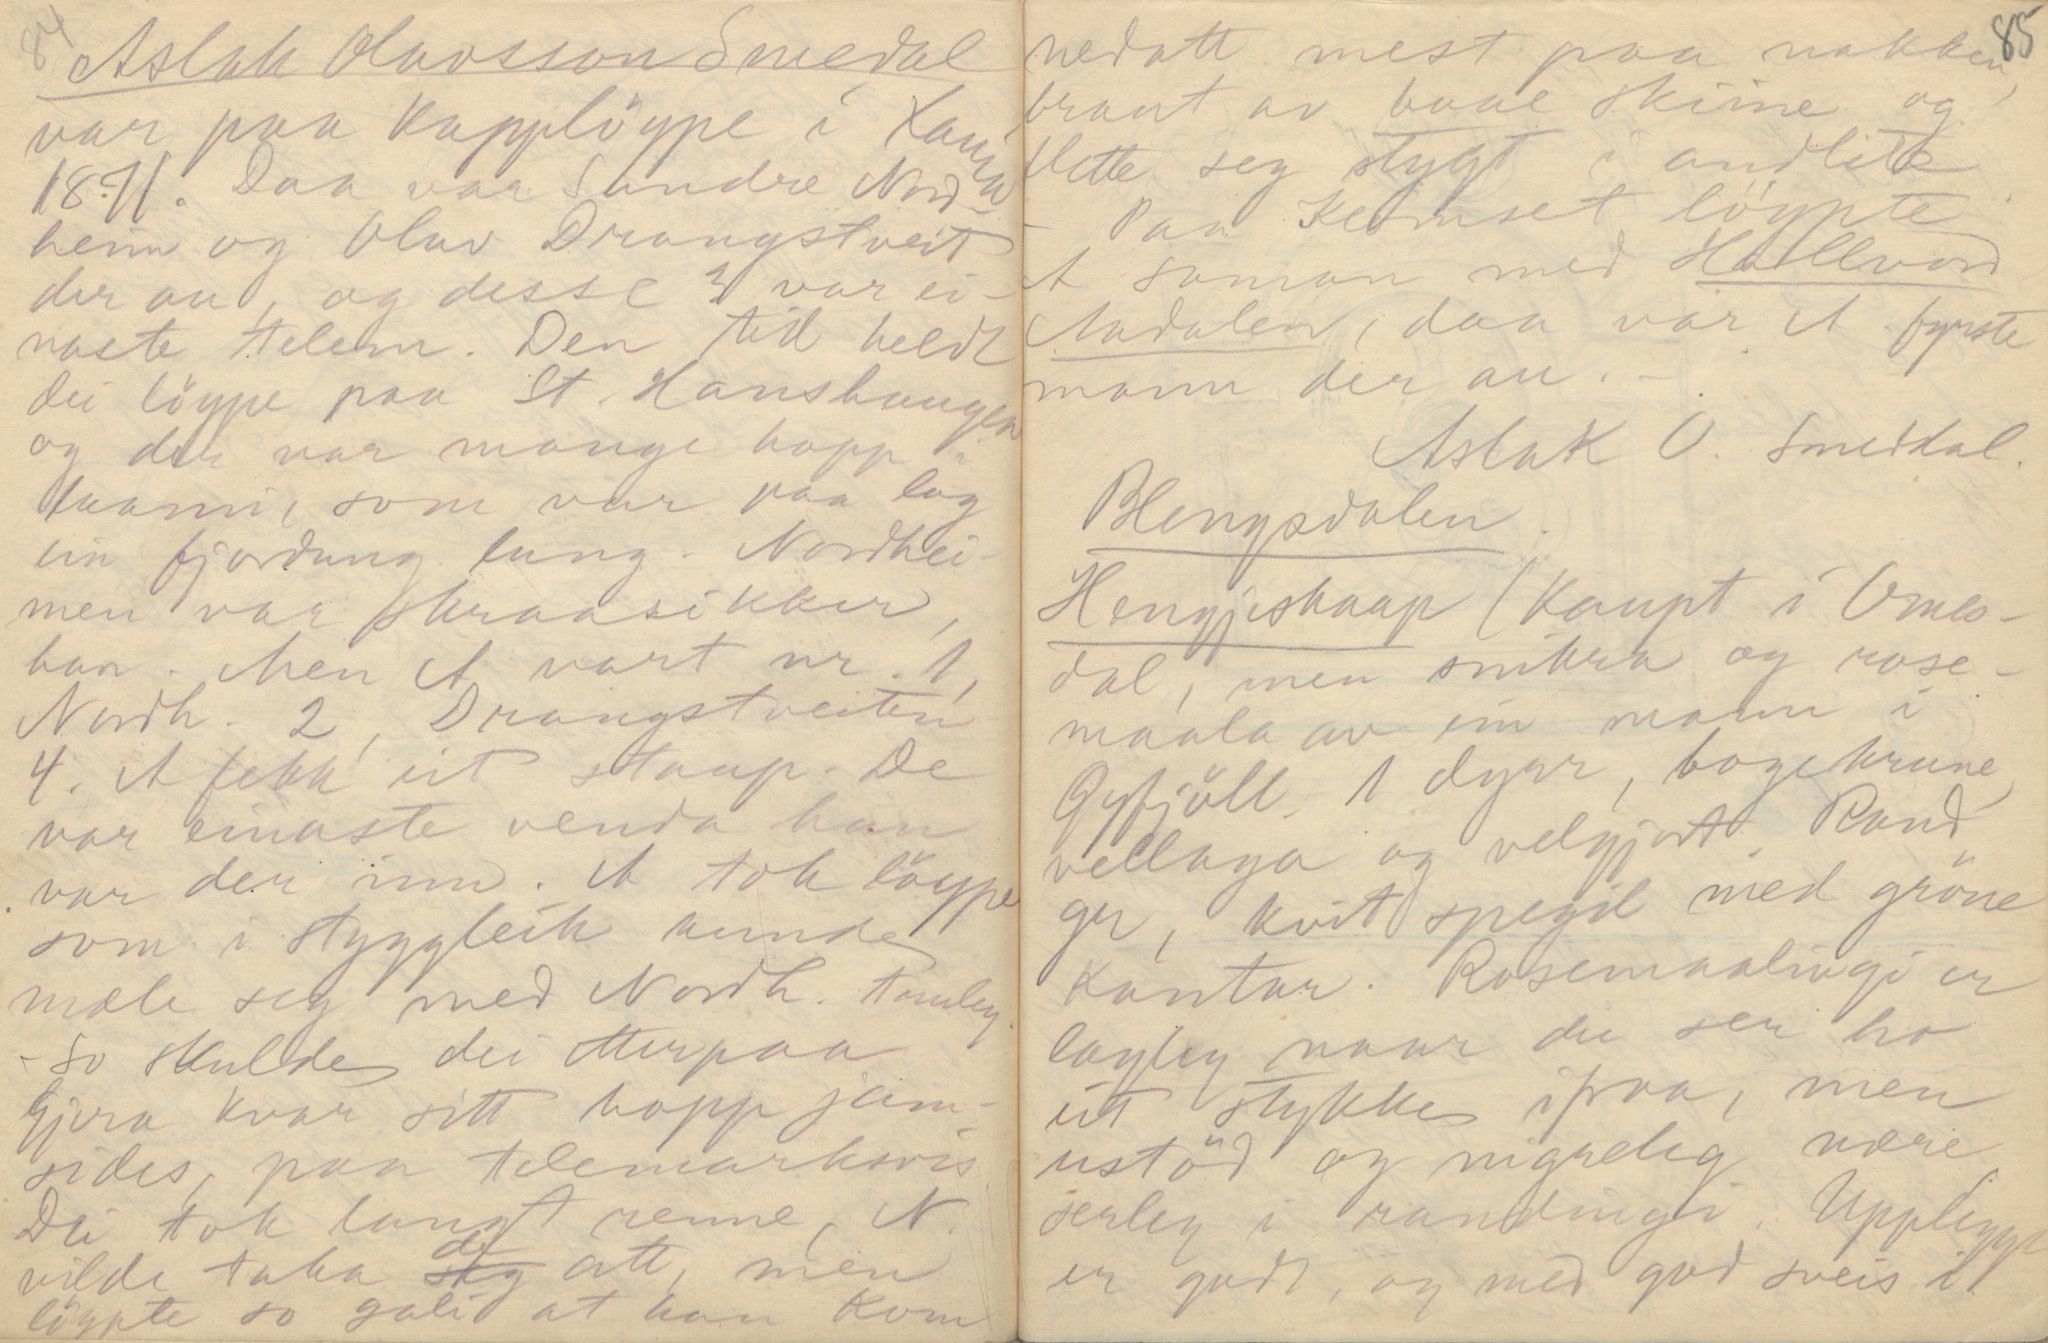 84
Aslak Olavsson Smedal
var paa kapplöype i Kania
1871. Daa var Sondre Nord-
heim og Olav Drangstveit
der au, og desse 3 var ei-
naste telem. Den tid heldt
dei löype paa St. Hanshaugen
og der var mange hopp i
laami, som var paa lag
ein fjordung lang. Nordhei-
men var skraasikker,
han. Men A vart nr. 1,
Nordh. 2, Drangstveiten
4. A fekk eit staup. De
var einaste venda han
var der inn. A tok löype
som i styggleik kunde
mæle seg med Nordh. tamleg.
- So skulde dei etterpaa
gjera kvar sitt hopp jam-
sides, paa telemarksvis.
Dei tok langt renne, N.
vilde taka de att, men
löypte so gali at han kom
85
nedatt mest paa nakken,
braut av baae skiine og
flette seg stygt i andlite
- Paa Keimset löypte
A saman med Hallvord
Aadalen, daa var A fyrste
mann der au. -
Aslak O. Smedkal.
Blengsdalen.
Hengjeskaap (kaupt i Omos-
dal, men snikra og rose-
maala av ein mann i
Gyfjöll. 1 dyrr, bogekrune,
vellaga og velgjort. Rand
ger, kvit spegil med gröne
kantar. Rosemaalingi er
lagleg naar du ser ho
eit stykke ifraa, men
ustöd og nigreleg nære
serleg i randingi. Upplegge
er godt, og med god sveis i